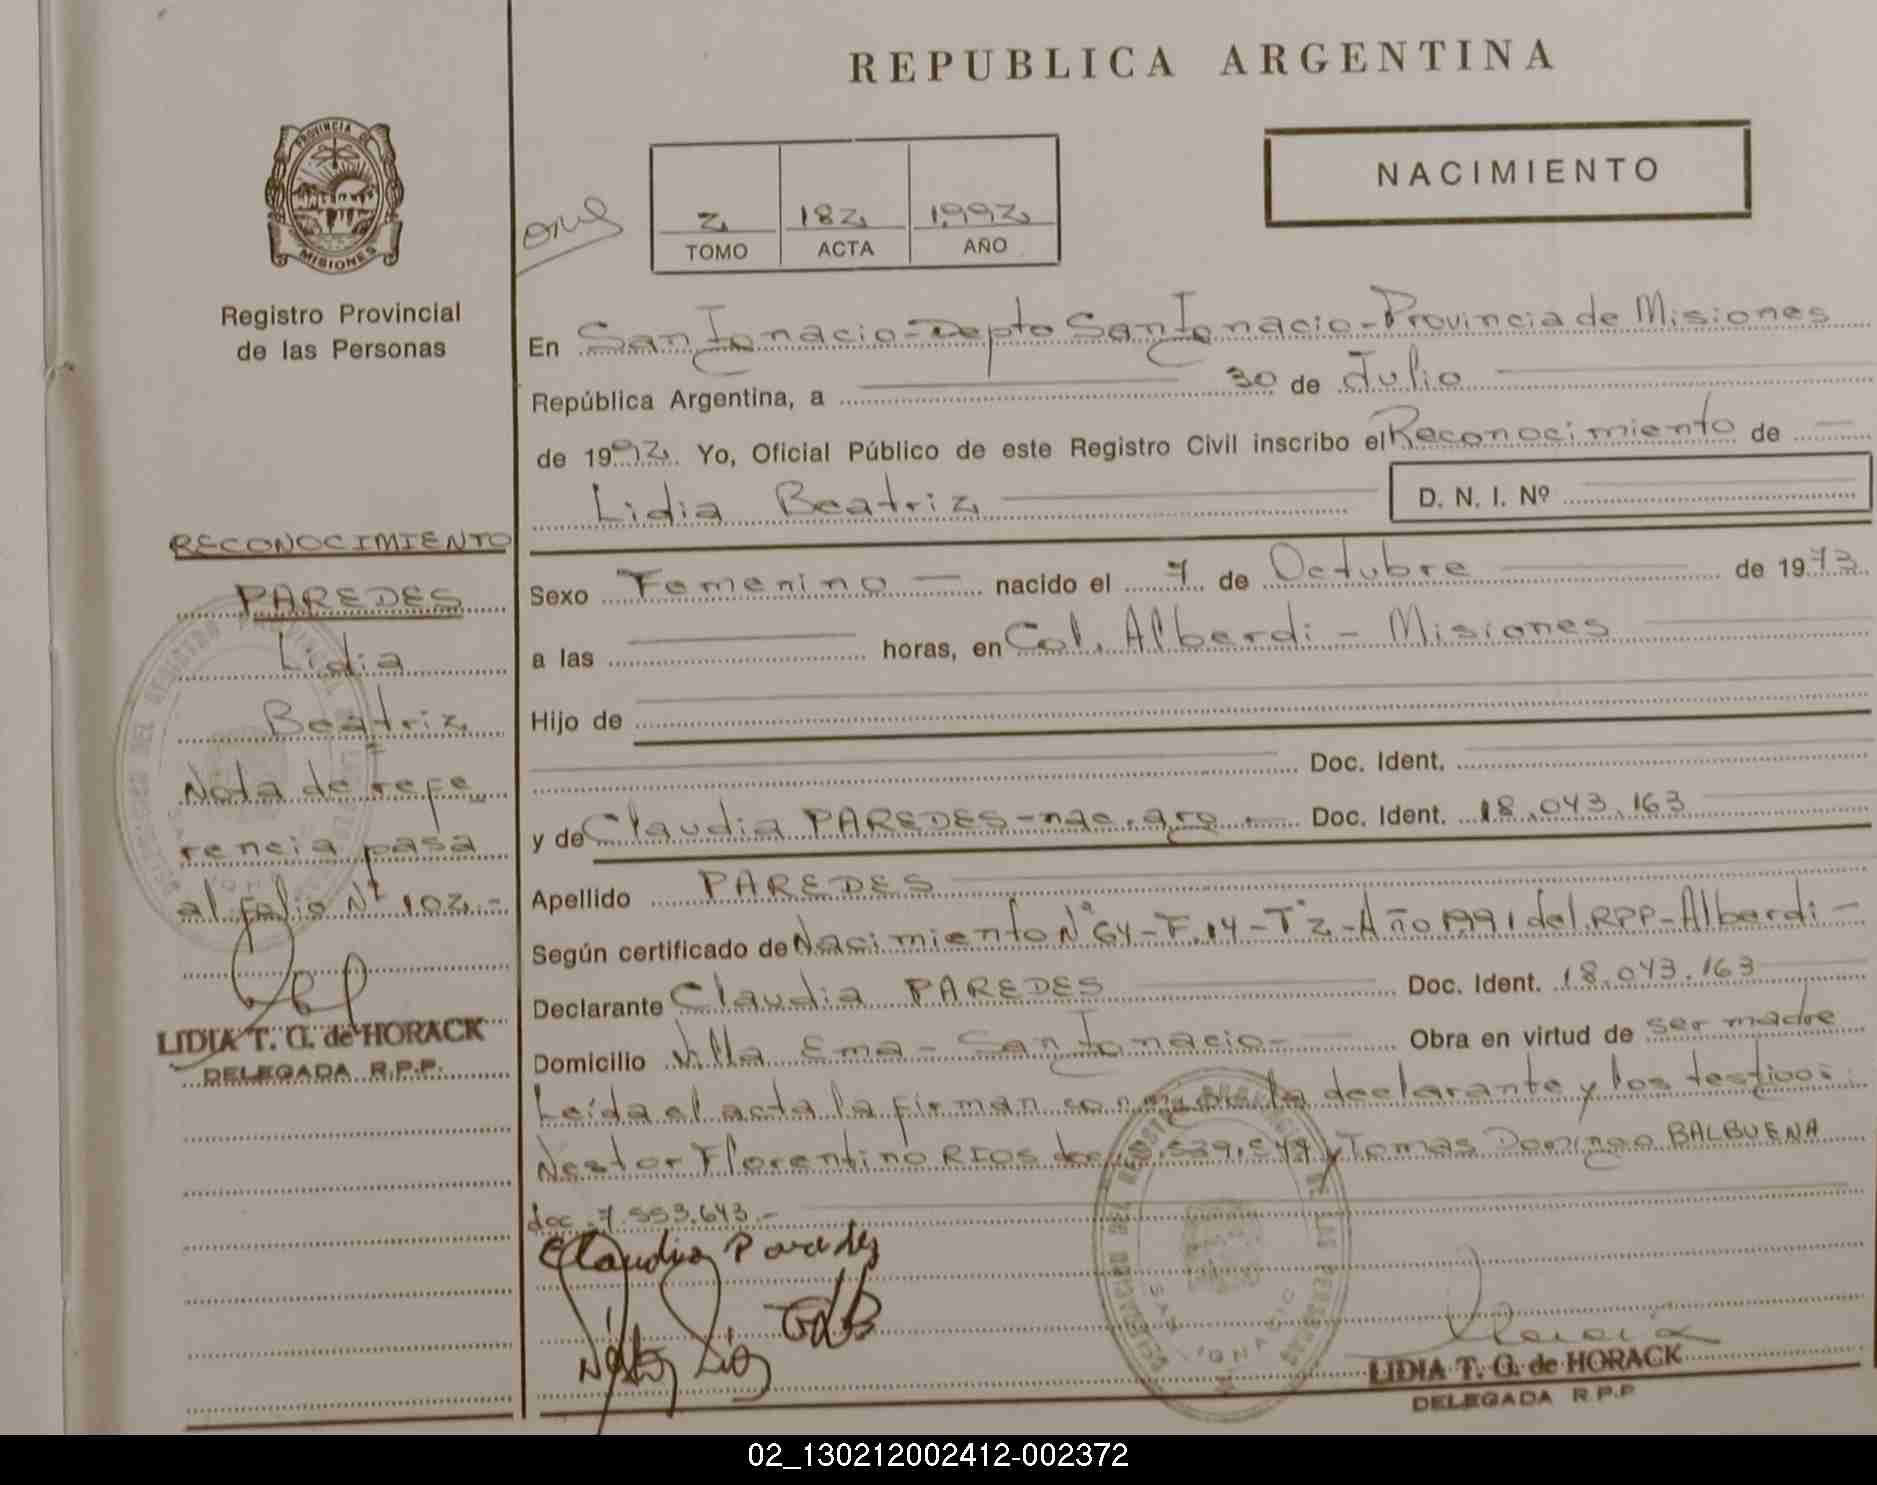 REPUBLICA ARGENTINA
NACIMIENTO
PROVINCIA DE
MISIONES
Registro Provincial
de las Personas
2 182 1992
TOMO ACTA AÑO
En San Ignacio - Depto San Ignacio - Provincia de Misiones
República Argentina, a 30 de Julio
de 1992. Yo, Oficial Público de este Registro Civil inscribo el Reconocimiento de
Lidia Beatriz D. N. I. Nº
Sexo Femenino nacido el 7 de Octubre de 1973
a las horas, en Col. Alberdi - Misiones
Hijo de
Doc. Ident.
y de Claudia PAREDES - nac. arg. Doc. Ident. 18.043.163
Apellido PAREDES
Según certificado de Nacimiento Nº 64 - F. 14 - Tº 2 - Año 1991 del RPP - Alberdi -
Declarante Claudia PAREDES Doc. Ident. 18.043.163
Domicilio Villa Ema - San Ignacio - Obra en virtud de ser madre
Leída el acta la firman conmigo la declarante y los testigos:
Nestor Florentino RIOS doc. .539.549 y Tomas Domingo BALBUENA
doc. 7.553.643.-
Claudia Paredes
LIDIA T. G. de HORACK
DELEGADA R.P.P.
RECONOCIMIENTO
PAREDES
Lidia
Beatriz
Nota de refe
rencia pasa
al folio Nº 102.-
LIDIA T. G. de HORACK
DELEGADA R.P.P.
02_130212002412-002372